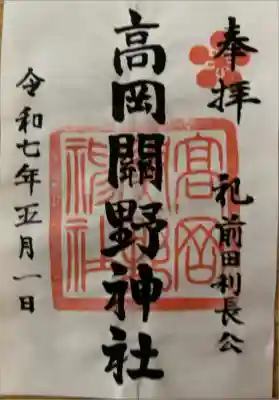 奉拝
祀 前田利長公
高岡關野神社
令和七年五月一日